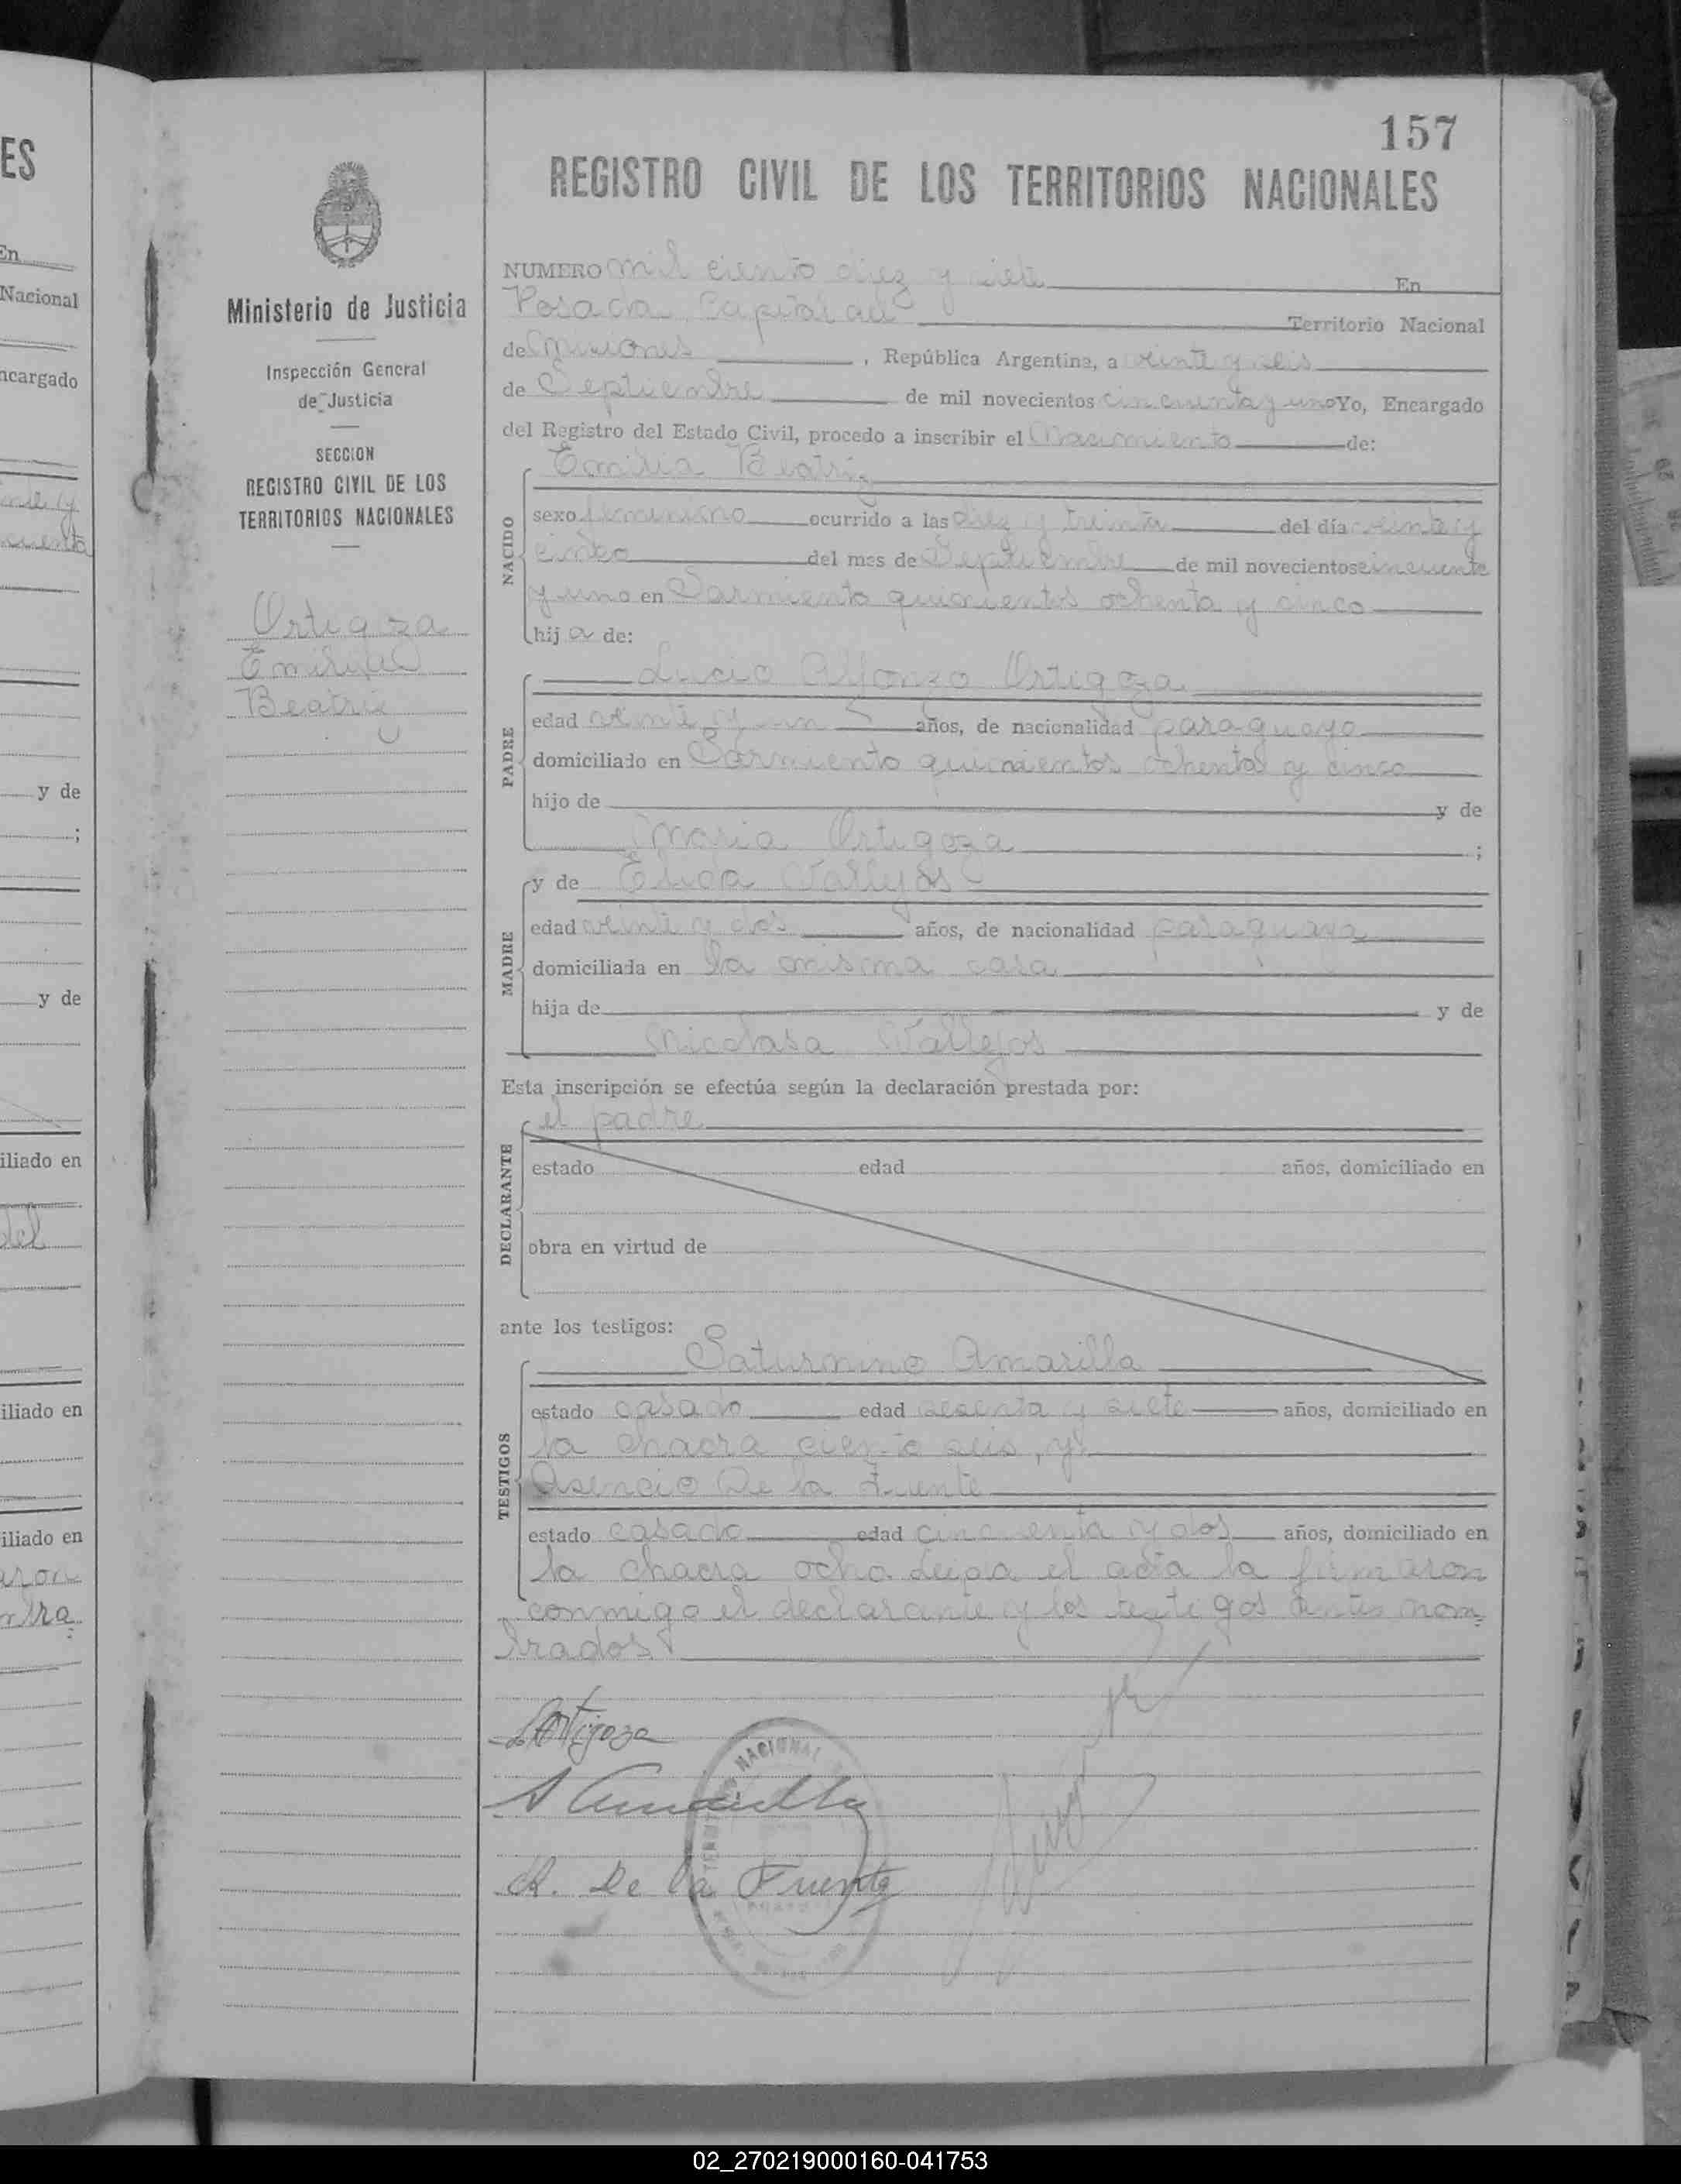 157
REGISTRO CIVIL DE LOS TERRITORIOS NACIONALES
Ministerio de Justicia
Inspección General
de Justicia
SECCION
REGISTRO CIVIL DE LOS
TERRITORIOS NACIONALES
Ortigoza
Emilia
Beatriz
NUMERO mil ciento diez y siete En
Posadas Capital del Territorio Nacional
de Misiones, República Argentina, a veinte y seis
de Septiembre de mil novecientos cincuenta y uno Yo, Encargado
del Registro del Estado Civil, procedo a inscribir el Nacimiento de:
Emilia Beatriz
NACIDO
sexo femenino ocurrido a las diez y treinta del día veinte y
cinco del mes de Septiembre de mil novecientos cincuenta
y uno en Sarmiento quinientos ochenta y cinco
hija de:
PADRE
Lucio Alfonzo Ortigoza
edad veinte y un años, de nacionalidad paraguayo
domiciliado en Sarmiento quinientos ochenta y cinco
hijo de y de
Maria Ortigoza ;
MADRE
y de Elida Vallejos
edad veinte y dos años, de nacionalidad paraguaya
domiciliada en la misma casa
hija de y de
Nicolasa Vallejos
Esta inscripción se efectúa según la declaración prestada por:
DECLARANTE
el padre
estado edad años, domiciliado en
obra en virtud de
ante los testigos:
TESTIGOS
Saturnino Amarilla
estado casado edad sesenta y siete años, domiciliado en
la chacra ciento seis, y
Asencio De la Fuente
estado casado edad cincuenta y dos años, domiciliado en
la chacra ocho. Leida el acta la firmaron
conmigo el declarante y los testigos antes nom=
brados.
L Ortigoza
S Amarilla
A. De la Fuente
NACIONAL
ES
En
Nacional
ncargado
y de
;
y de
iliado en
del
iliado en
iliado en
aron
02_270219000160-041753